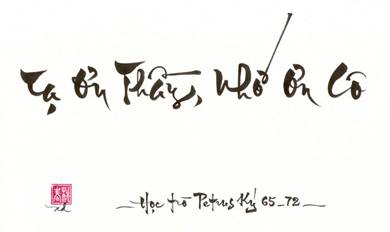 Tạ Ơn Thầy, Nhớ Ơn Cô
Học trò Petrus Ký 65-72